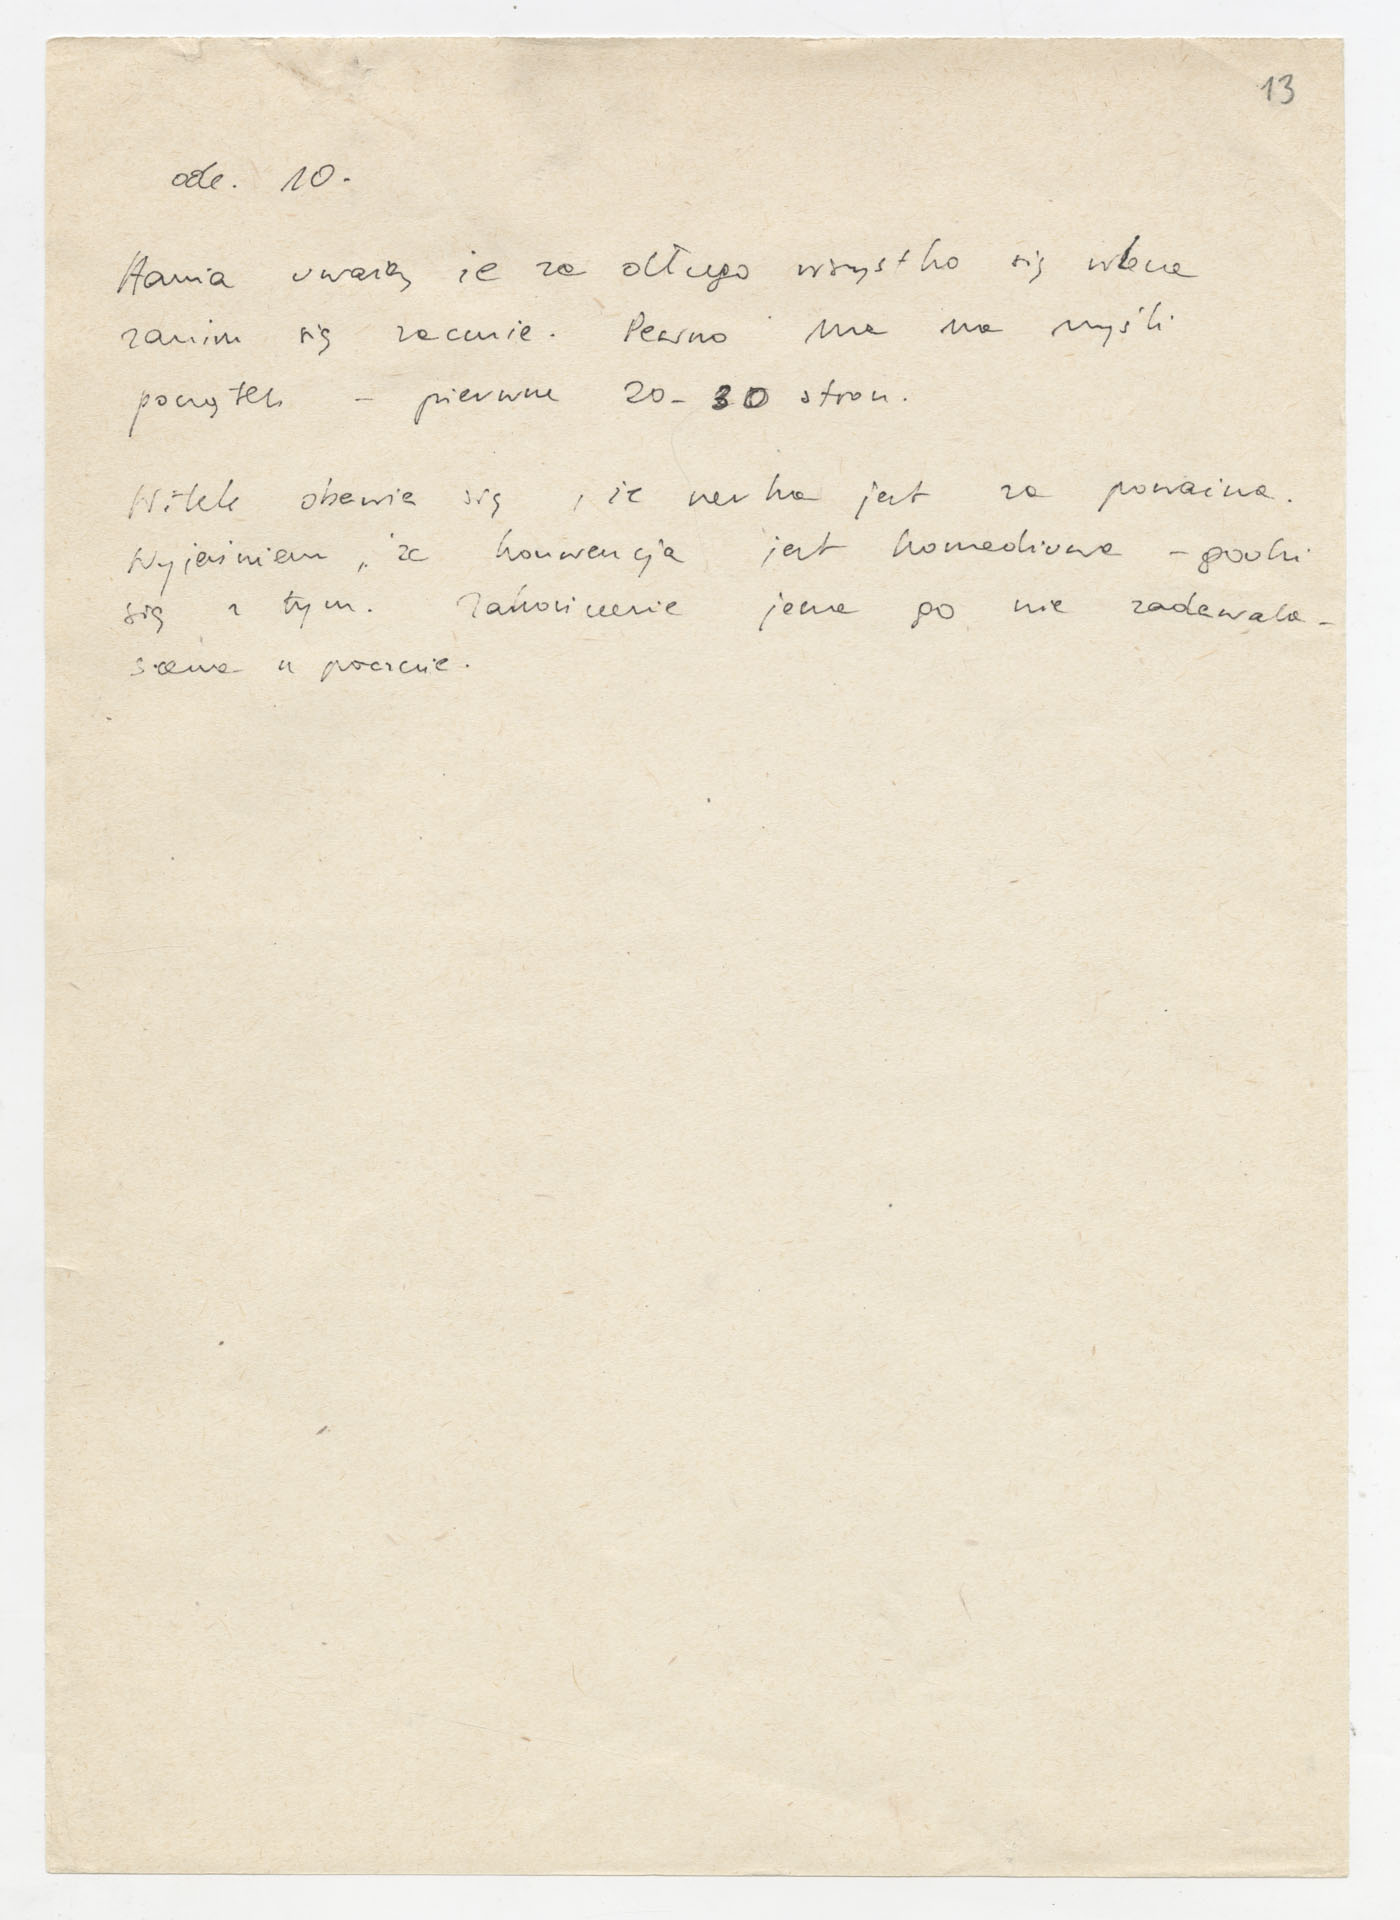 13
odc. 10.
Hania uważa że za długo wszystko się wlecze
zanim się zacznie. Pewno ma na myśli
początek – pierwsze 20-30 stron.
Witek obawia się, że  jest za poważna.
Wyjaśniem, że konwencja jest komediowa – godzi
się z tym. Zakończenie jeszcze go nie zadawala –
scena w pociągu.